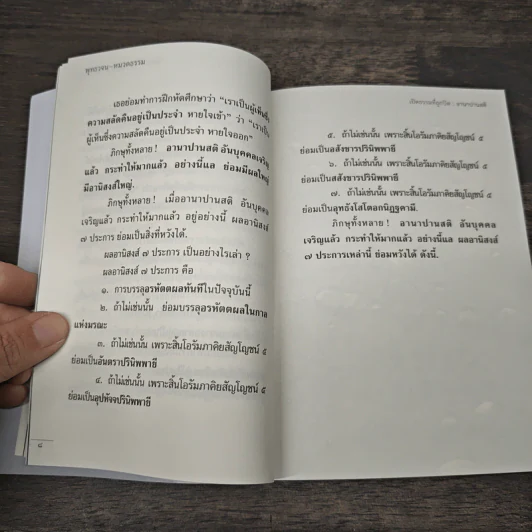 พุทธวจน - หมวดธรรม
เธอย่อมทำการฝึกหัดศึกษาว่า “เราเป็นผู้เห็นซึ่ง
ความสลัดคืนอยู่เป็นประจำ หายใจเข้า” ว่า “เราเป็น
ผู้เห็นซึ่งความสลัดคืนอยู่เป็นประจำ หายใจออก”
ภิกษุทั้งหลาย ! อานาปานสติ อันบุคคลเจริญ
แล้ว กระทำให้มากแล้ว อย่างนี้แล ย่อมมีผลใหญ่
มีอานิสงส์ใหญ่.
ภิกษุทั้งหลาย ! เมื่ออานาปานสติ อันบุคคล
เจริญแล้ว กระทำให้มากแล้ว อยู่อย่างนี้ ผลอานิสงส์
๗ ประการ ย่อมเป็นสิ่งที่หวังได้.
ผลอานิสงส์ ๗ ประการ เป็นอย่างไรเล่า ?
ผลอานิสงส์ ๗ ประการ คือ
๑. การบรรลุอรหัตตผลทันทีในปัจจุบันนี้
๒. ถ้าไม่เช่นนั้น ย่อมบรรลุอรหัตตผลในกาล
แห่งมรณะ
๓. ถ้าไม่เช่นนั้น เพราะสิ้นโอรัมภาคิยสัญโญชน์ ๕
ย่อมเป็นอันตราปรินิพพายี
๔. ถ้าไม่เช่นนั้น เพราะสิ้นโอรัมภาคิยสัญโญชน์ ๕
ย่อมเป็นอุปหัจจปรินิพพายี
๘
อานาปานสติ
๕. ถ้าไม่เช่นนั้น เพราะสิ้นโอรัมภาคิยสัญโญชน์ ๕
ย่อมเป็นอสังขารปรินิพพายี
๖. ถ้าไม่เช่นนั้น เพราะสิ้นโอรัมภาคิยสัญโญชน์ ๕
ย่อมเป็นสสังขารปรินิพพายี
๗. ถ้าไม่เช่นนั้น เพราะสิ้นโอรัมภาคิยสัญโญชน์ ๕
ย่อมเป็นอุทธังโสโตอกนิฏฐคามี.
ภิกษุทั้งหลาย ! อานาปานสติ อันบุคคล
เจริญแล้ว กระทำให้มากแล้ว อย่างนี้แล ผลอานิสงส์
๗ ประการเหล่านี้ ย่อมหวังได้ ดังนี้.